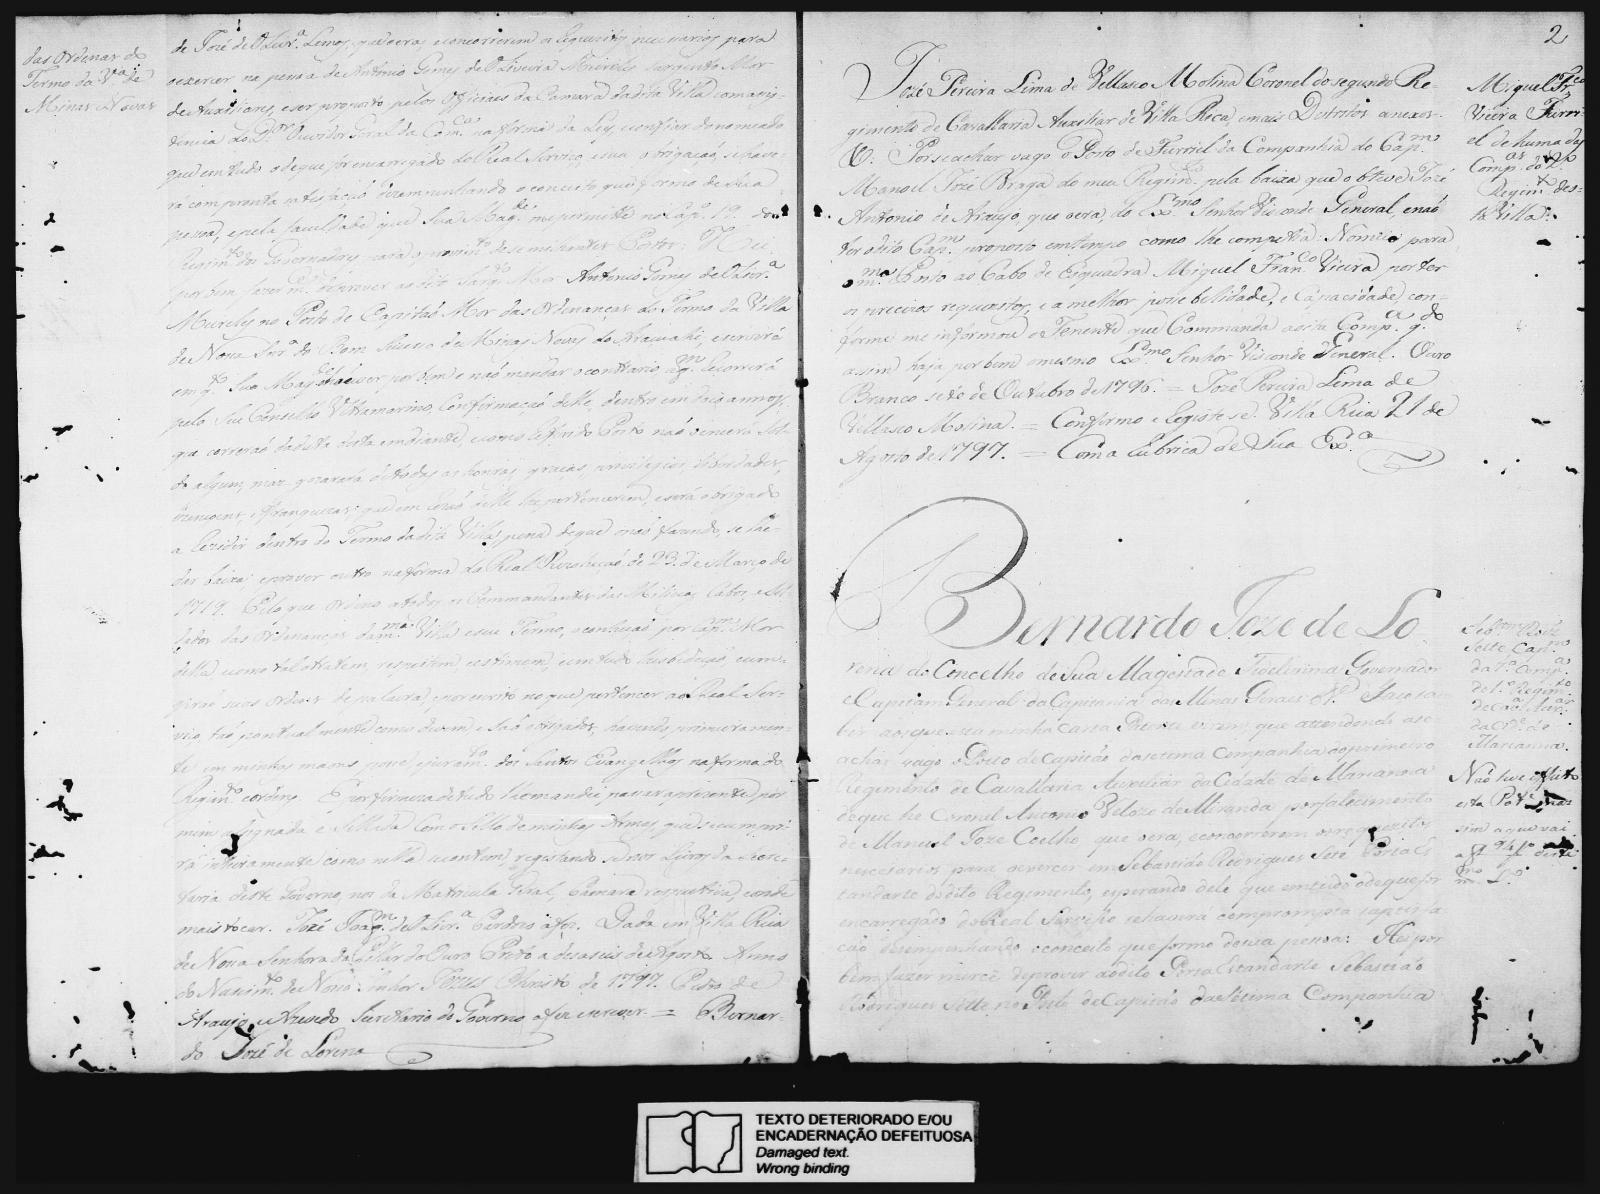 das Ordenas do
Termo da Vª de
Minas Novas
de Joze de Olivrª Lemos, que vera, e concorrerem os requizitos necessarios para
o exercer na pessoa de Antonio Gomes de Oliveira Meirelles Sargento Mor
de Auxiliares, e ser proposto pelos Officiaes da Camara da dita Villa com asis-
tencia do Dr Ouvidor Geral da Comca na forma da Ley, e confiar do nomeado
que em tudo o de que for encarregado do Real Serviço, e sua obrigaçaõ, se have-
rá com prompta satisfaçaõ dezempenhando o conceito que formo de sua
pessoa, e pela faculdade que Sua Magde me permitte no Capº 19. do
Regimto dos Governadores para o provimto de semilhantes Postos: Hei
por bem fazer mce de prover ao dito Sargto Mor Antonio Gomes de Olivrª
Meirelles no Posto de Capitaõ Mor das Ordenanças do Termo da Villa
de Nossa Snrª do Bom Sucesso de Minas Novas do Arassuahi, e servirá
em qto Sua Magde houver por bem e naõ mandar o contrario a qm recorrerá
pelo Seu Conselho Ultramarino, Confirmaçaõ delle, dentro em dois annos
que correraõ da data desta em diante, e com o refferido Posto naõ vencerá Sol-
do algum, mas gozará de todas as honras, graças, privilegios, liberdades,
izençoens, e franquezas, que em razaõ delle lhe pertencerem, e será obrigado
a rezidir dentro do Termo da dita Villa, pena de que naõ o fazendo, se lhe
dar baixa, e prover outro na forma da Real Rezoluçaõ de 23. de Março de
1719. Pelo que Ordeno a todos os Commandantes das Milicias, Cabos, e Sol-
dados das Ordenanças da mma Villa e seu Termo, o conheçaõ por Capm Mor
della e como tal o tratem, respeitem e estimem, e em tudo lhe obedeçaõ, cum-
priráõ suas ordens de palavra, e por escrito no que pertencer ao Real Ser-
viço, taõ pontualmente como devem e saõ obrigados, havendo primeiramen-
te em minhas maons posse, e juramto dos Santos Evangelhos na forma do
Regimto e ordens. E por firmeza de tudo lhe mandei passar a prezente por
mim assignada e Sellada Com o Sello de minhas Armas, que se cumpri-
rá inteiramente como nella se contem, registando-se nos Livros da Secre-
taria deste Governo, nos da Matricula Geral, Camara respectiva, e onde
mais tocar. Jozé Joaqm de Olivrª Cardozo a fez. Dada em Villa Rica
de Nossa Senhora do Pillar do Ouro Preto a dezaseis de Agosto Anno
do Nascimto de Nosso Senhor Jezus Christo de 1797. Pedro de
Araujo e Azevedo Secretario do Governo a fez escrever. = Bernar-
do Jozé de Lorena
2
Jozé Pereira Lima de Vellasco Molina Coronel do segundo Re-
gimento de Cavallaria Auxiliar de Villa Rica, e mais Destritos anexos
&. Por se achar vago o Posto de Furriel da Companhia do Capm
Manoel Jozé Braga do meu Regimto pela baixa que obteve Jozé
Antonio de Araujo, que o era, do Exmo Senhor Visconde General, e naõ
ter o dito Capm proposto em tempo como lhe competia: Nomeio para
o mmo Posto ao Cabo de Esquadra Miguel Franco Vieira por ter
os precizos requezitos, e a melhor possebelidade, e Capacidade, con-
forme me informou o Tenente que Commanda a dita Compª qdo
assim haja por bem o mesmo Exmo Senhor Visconde General. Ouro
Branco sete de Outubro de 1796. = Jozé Pereira Lima de
Vellasco Molina. = Confirmo e Registe-se. Villa Rica 21 de
Agosto de 1797. = Com a Rubrica de Sua Exca
Miguel Frco
Vieira Furri-
el de huma das
Compas do 2º
Regimto des-
ta Villa.
Bernardo Joze de Lo-
rena do Concelho de Sua Magestade Fidelissima Governador
e Capitam General da Capitania das Minas Geraes &ª. Faço sa-
ber aos que esta minha Carta Patente virem, que attendendo a se
achar vago o Posto de Capitão da setima Companhia do primeiro
Regimento de Cavallaria Auxiliar da Cidade de Marianna
de que he Coronel Antonio Velozo de Miranda por falecimento
de Manuel Joze Coelho que o era, e concorrerem os requezitos
necessarios para o exercer em Sebastião Rodrigues Sete Porta Es
tandarte do dito Regimento, esperando dele que em tudo o de que for
encarregado do Real Serviço se haverá com prompta satisfa
ção desempenhando o conceito que formo de sua pessoa: Hei por
bem fazer mercê de prover ao dito Porta Estandarte Sebastião
Rodrigues Sette no Posto de Capitão da Setima Companhia
Sebam Roiz
Sette Capm
da 7ª Compª
do 1º Regimto
de Caª Aux
da Cide de
Marianna.
Não teve effeito
esta Pate mas
sim a que vai
a fl 94 deste
mmo Lº
TEXTO DETERIORADO E/OU
ENCADERNAÇÃO DEFEITUOSA
Damaged text.
Wrong binding